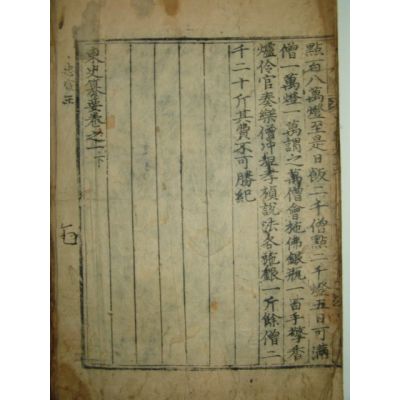 點百八萬燈至是日飯二千僧點二千燈五日可滿
僧一萬燈一萬謂之萬僧會施佛銀瓶一百手擎香
爐伶官奏樂僧冲鑑孝楨說法各施銀一斤餘僧二
千二十斤其費不可勝紀
東史纂要卷之一下
忠宣王